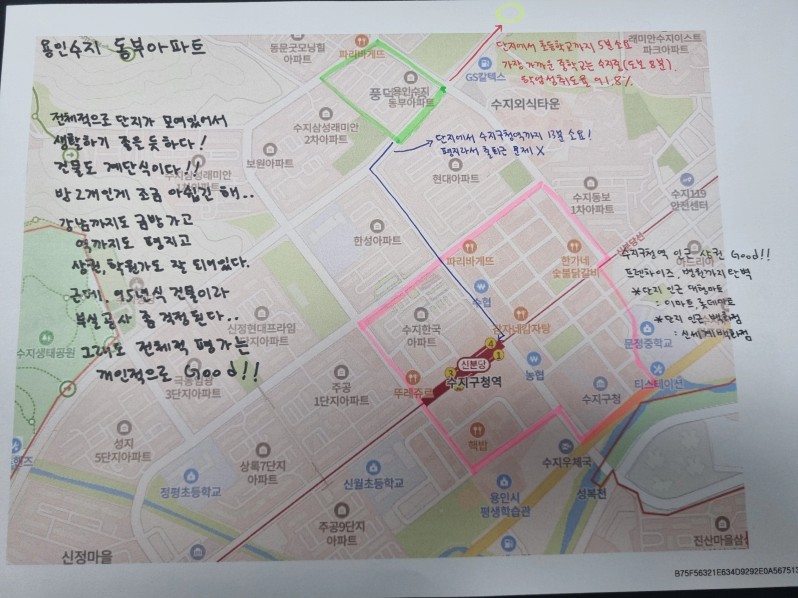 용인수지 동부아파트
전체적으로 단지가 모여있어서
생활하기 좋은듯 하다!
건물도 계단식이다!!
방 2개인게 조금 아쉽긴 해..
강남까지도 금방가고
역까지도 평지고
상권, 학원가도 잘 되어있다.
근데, 95년식 건물이라
부실공사 좀 걱정된다..
그래도 전체적 평가는
개인적으로 Good!!
단지에서 초등학교까지 5분 소요
가장 가까운 중학교는 수지중(도보 8분)
학업성취도율 91.8%
단지에서 수지구청역까지 13분 소요!
평지라서 출퇴근 문제 X
수지구청역 인근 상권 Good!!
프렌차이즈, 병원까지 완벽
*단지 인근 대형마트
: 이마트, 롯데마트
*단지 인근 백화점
: 신세계백화점
동문굿모닝힐
아파트
파리바게뜨
GS칼텍스
래미안수지이스트
파크아파트
용인수지
동부아파트
수지외식타운
수지삼성래미안
2차아파트
보원아파트
현대아파트
수지동보
1차아파트
수지119
안전센터
한성아파트
신분당선
파리바게뜨
한가네
숯불닭갈비
수협
수지한국
아파트
감자네감자탕
신정현대프라임
단지아파트
문정중학교
수지생태공원
4
1
신분당
수지구청역
3
농협
수지구청
티스테이션
3단지아파트
주공
1단지아파트
뚜레쥬르
핵밥
성지
5단지아파트
상록7단지
아파트
수지우체국
정평초등학교
신월초등학교
용인시
평생학습관
성복천
주공9단지
아파트
신정마을
진산마을삼
B75F56321E634D9292E0A567513